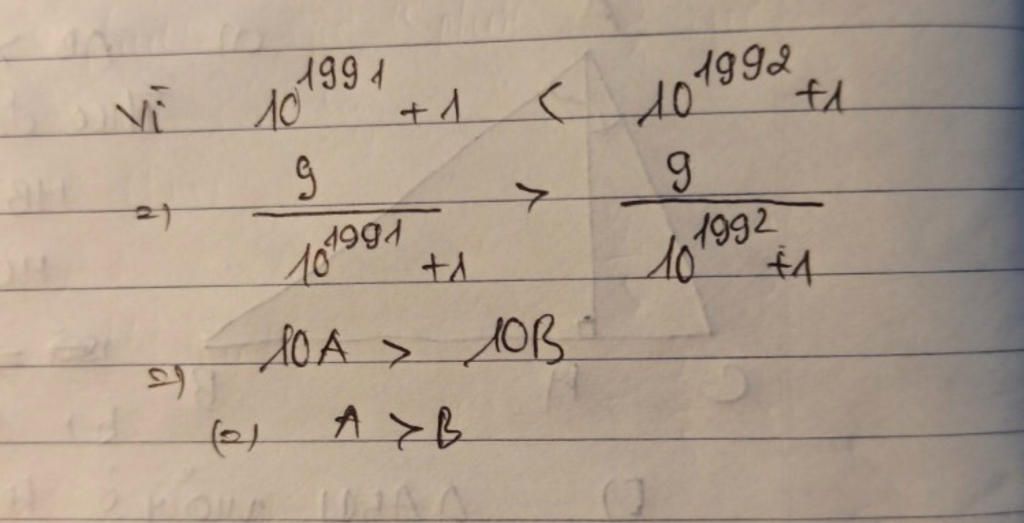 Vì 10^1991 + 1 < 10^1992 + 1
=) 9/(10^1991 + 1) > 9/(10^1992 + 1)
=) 10A > 10B
(=) A > B